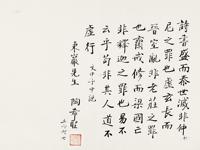 詩書盛而秦世滅非仲
尼之罪也虛玄長而
晉室亂非老莊之罪
也齋戒修而梁國亡
非釋迦之罪也易不
云乎苟非其人道不
虛行 文中子中說
東巖先生 陶希聖